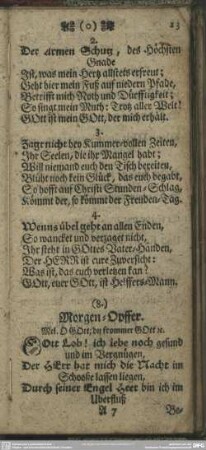 (0) 23
2.
Der Armen Schutz, des Höchsten
Gnade
Ist, was mein Hertz allstets erfreut;
Geht hier mein Fuß auf niedern Pfade,
Betrifft mich Noth und Dürfftigkeit;
So singt mein Muth: Trotz aller Welt!
GOtt ist mein GOtt, der mich erhält.
3.
Zagt nicht bey Kummer-vollen Zeiten,
Ihr Seelen, die ihr Mangel habt;
Will niemand euch den Tisch bereiten,
Blüht noch kein Glück, das euch begabt,
So hofft auf Christi Stunden-Schlag,
Kömmt der, so kömmt der Freuden-Tag.
4.
Wenns übel geht an allen Enden,
So wancket und verzaget nicht,
Ihr steht in GOttes Vater-Händen,
Der HERR ist eure Zuversicht:
Was ist, das euch verletzen kan?
GOtt, euer GOtt, ist Helffers-Mann.
(8.)
Morgen-Opffer.
Mel. O GOtt, du frommer GOtt ꝛc.
GOtt Lob! ich lebe noch gesund
und im Vergnügen,
Der HErr hat mich die Nacht im
Schooße lassen liegen,
Durch seiner Engel Heer bin ich im
Uberfluß
A 7 Be-